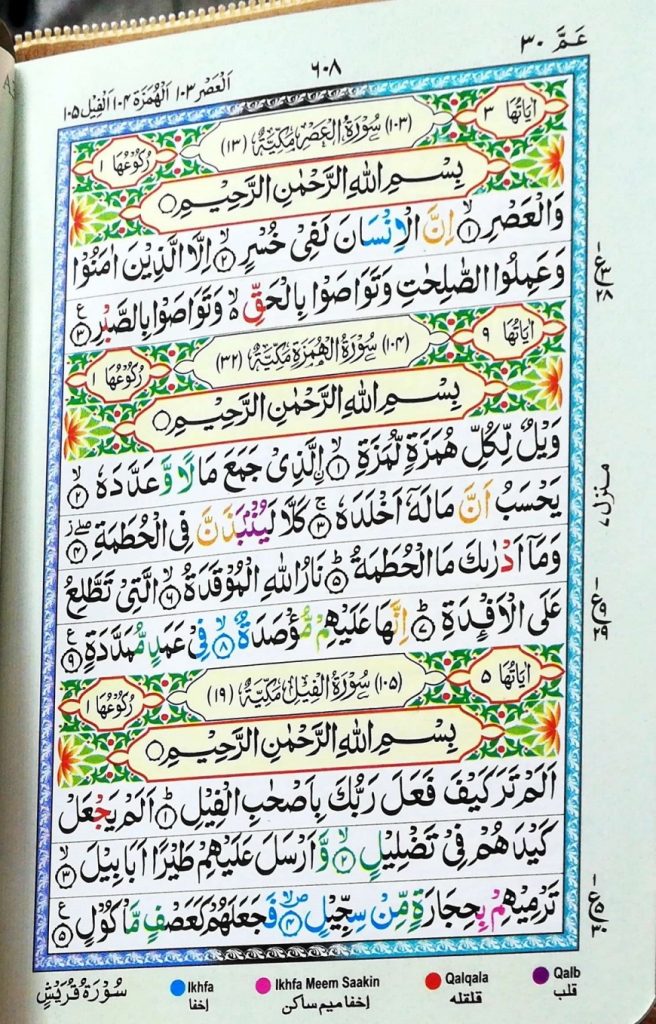 عَمَّ ٣٠
٦٠٨
اَلْعَصْر ١٠٣ اَلْهُمَزَة ١٠٤ اَلْفِيْل ١٠٥
اٰيَاتُهَا ٣
(١٠٣) سُوْرَةُ الْعَصْرِ مَكِّيَّةٌ (١٣)
رُكُوْعُهَا ١
بِسْمِ اللّٰهِ الرَّحْمٰنِ الرَّحِيْمِ
وَالْعَصْرِ ۙ﴿١﴾ اِنَّ الْاِنْسَانَ لَفِیْ خُسْرٍ ۙ﴿٢﴾ اِلَّا الَّذِيْنَ اٰمَنُوْا
وَعَمِلُوا الصّٰلِحٰتِ وَتَوَاصَوْا بِالْحَقِّ ۙ۬ وَتَوَاصَوْا بِالصَّبْرِ ﴿٣﴾ ع
اٰيَاتُهَا ٩
(١٠٤) سُوْرَةُ الْهُمَزَةِ مَكِّيَّةٌ (٣٢)
رُكُوْعُهَا ١
بِسْمِ اللّٰهِ الرَّحْمٰنِ الرَّحِيْمِ
وَيْلٌ لِّكُلِّ هُمَزَةٍ لُّمَزَةِ ۙ﴿١﴾ اِ۟لَّذِیْ جَمَعَ مَالًا وَّعَدَّدَهٗ ۙ﴿٢﴾
يَحْسَبُ اَنَّ مَالَهٗۤ اَخْلَدَهٗ ۚ﴿٣﴾ كَلَّا لَيُنْۢبَذَنَّ فِی الْحُطَمَةِ ۖ﴿٤﴾
وَمَاۤ اَدْرٰىكَ مَا الْحُطَمَةُ ؕ﴿٥﴾ نَارُ اللّٰهِ الْمُوْقَدَةُ ۙ﴿٦﴾ الَّتِیْ تَطَّلِعُ
عَلَى الْاَفْـِٕدَةِ ؕ﴿٧﴾ اِنَّهَا عَلَيْهِمْ مُّؤْصَدَةٌ ۙ﴿٨﴾ فِیْ عَمَدٍ مُّمَدَّدَةٍ ﴿٩﴾ ع
اٰيَاتُهَا ٥
(١٠٥) سُوْرَةُ الْفِيْلِ مَكِّيَّةٌ (١٩)
رُكُوْعُهَا ١
بِسْمِ اللّٰهِ الرَّحْمٰنِ الرَّحِيْمِ
اَلَمْ تَرَ كَيْفَ فَعَلَ رَبُّكَ بِاَصْحٰبِ الْفِيْلِ ؕ﴿١﴾ اَلَمْ يَجْعَلْ
كَيْدَهُمْ فِیْ تَضْلِيْلٍ ۙ﴿٢﴾ وَّاَرْسَلَ عَلَيْهِمْ طَيْرًا اَبَابِيْلَ ۙ﴿٣﴾
تَرْمِيْهِمْ بِحِجَارَةٍ مِّنْ سِجِّيْلٍ ۪ۙ﴿٤﴾ فَجَعَلَهُمْ كَعَصْفٍ مَّاْكُوْلٍ ﴿٥﴾ ع
ع ٣ ٢٨
منزل ٧
ع ٩ ٢٩
ع ٥ ٣٠
سُوْرَةُ قُرَيْشٍ
Ikhfa
اخفا
Ikhfa Meem Saakin
اخفا میم ساکن
Qalqala
قلقلہ
Qalb
قلب